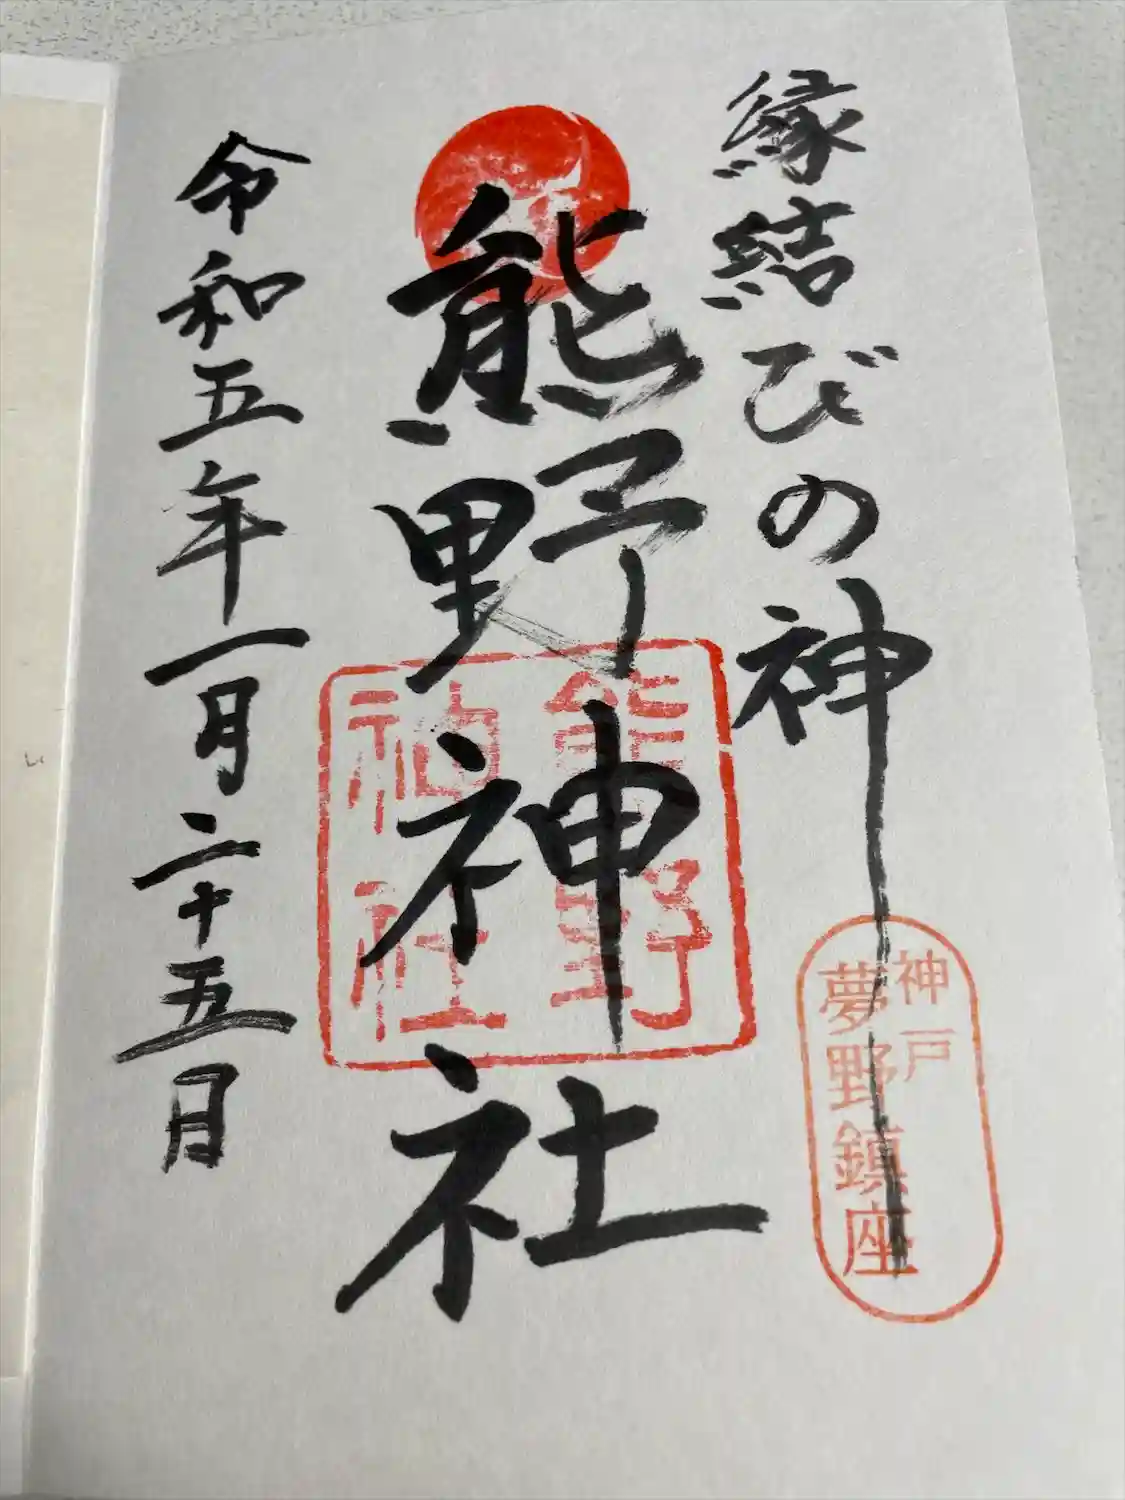 縁結びの神
神戸
夢野鎮座
熊野神社
熊野
神社
令和五年一月二十五日